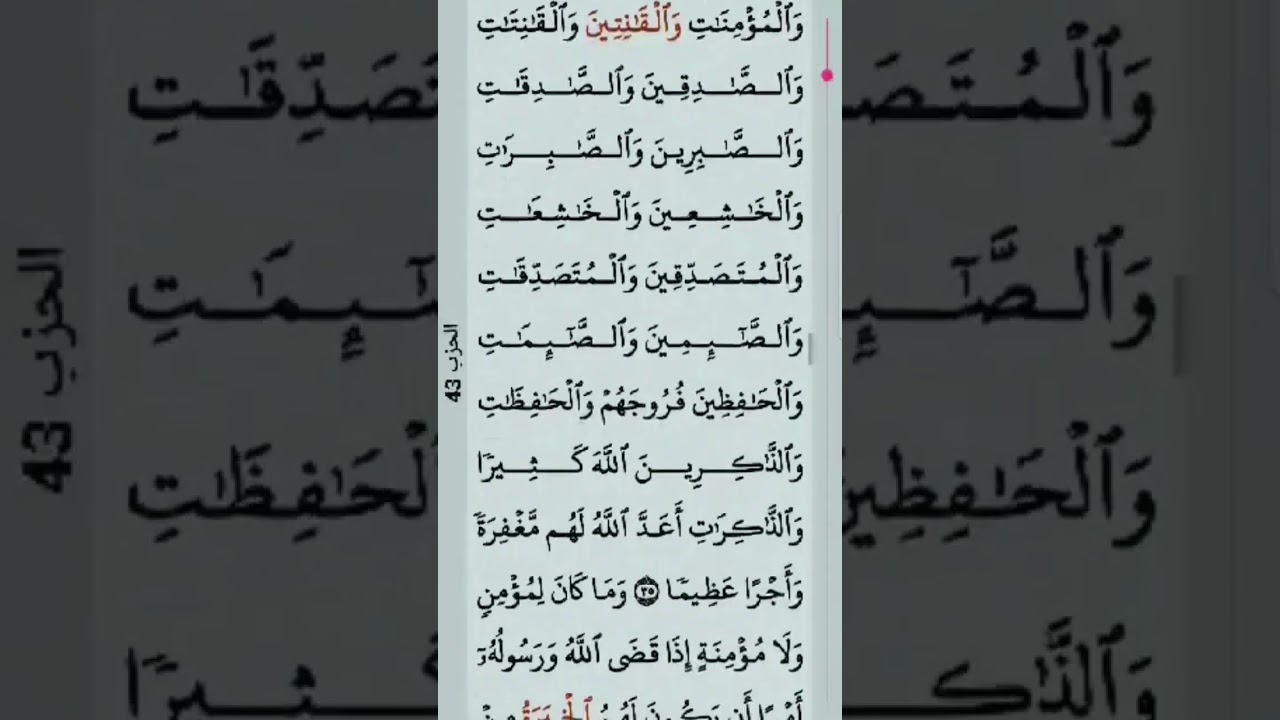 وَٱلْمُؤْمِنَـٰتِ وَٱلْقَـٰنِتِينَ وَٱلْقَـٰنِتَـٰتِ
وَٱلصَّـٰدِقِينَ وَٱلصَّـٰدِقَـٰتِ
وَٱلصَّـٰبِرِينَ وَٱلصَّـٰبِرَٰتِ
وَٱلْخَـٰشِعِينَ وَٱلْخَـٰشِعَـٰتِ
وَٱلْمُتَصَدِّقِينَ وَٱلْمُتَصَدِّقَـٰتِ
وَٱلصَّـٰٓئِمِينَ وَٱلصَّـٰٓئِمَـٰتِ
وَٱلْحَـٰفِظِينَ فُرُوجَهُمْ وَٱلْحَـٰفِظَـٰتِ
وَٱلذَّٰكِرِينَ ٱللَّهَ كَثِيرًا
وَٱلذَّٰكِرَٰتِ أَعَدَّ ٱللَّهُ لَهُم مَّغْفِرَةً
وَأَجْرًا عَظِيمًا ٣٥ وَمَا كَانَ لِمُؤْمِنٍ
وَلَا مُؤْمِنَةٍ إِذَا قَضَى ٱللَّهُ وَرَسُولُهُۥٓ
أَمْرًا أَن يَكُونَ لَهُمُ ٱلْخِيَرَةُ مِنْ
الحزب 43